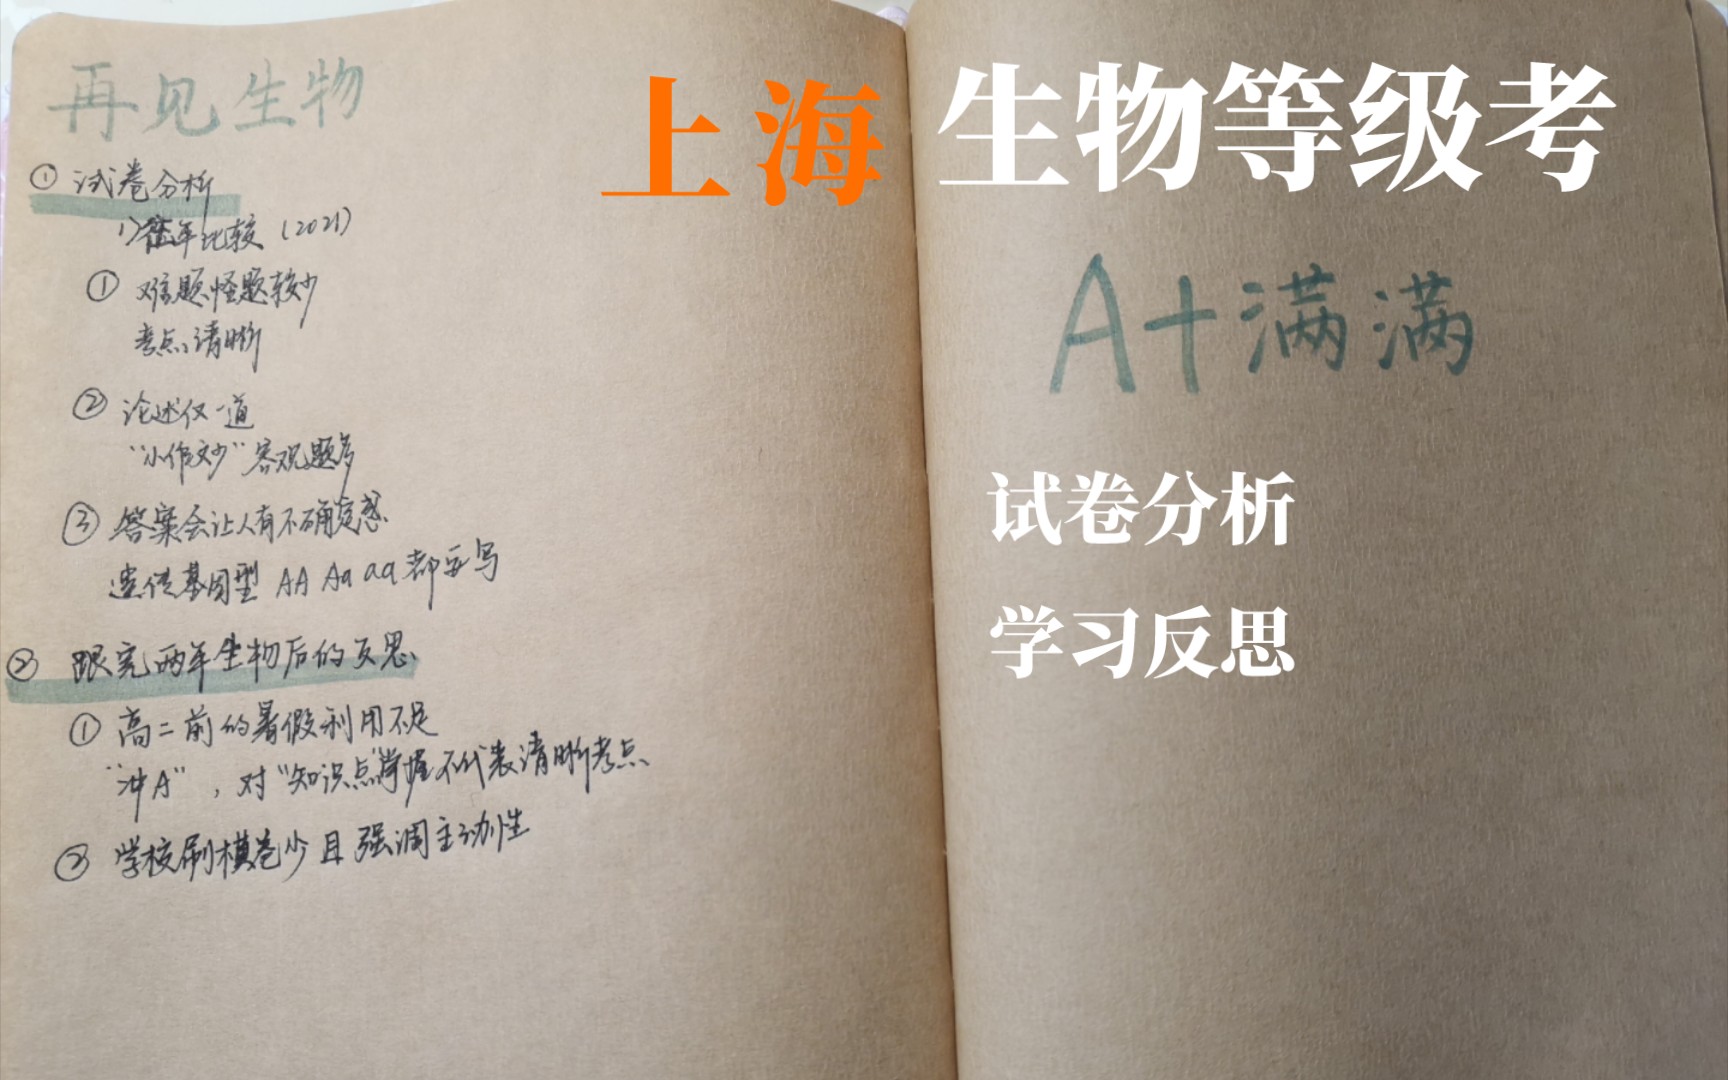 再见生物
① 试卷分析
1)往年比较(2021)
① 难题怪题较少
考点清晰
② 论述仅一道
“小作文少”客观题多
③ 答案会让人有不确定感
遗传基因型 AA Aa aa都要写
② 跟完两年生物后的反思
① 高二前的暑假利用不足
“冲A”，对“知识点掌握不代表清晰考点
② 学校刷模卷少且强调主动性
上海 生物等级考
A+满满
试卷分析
学习反思